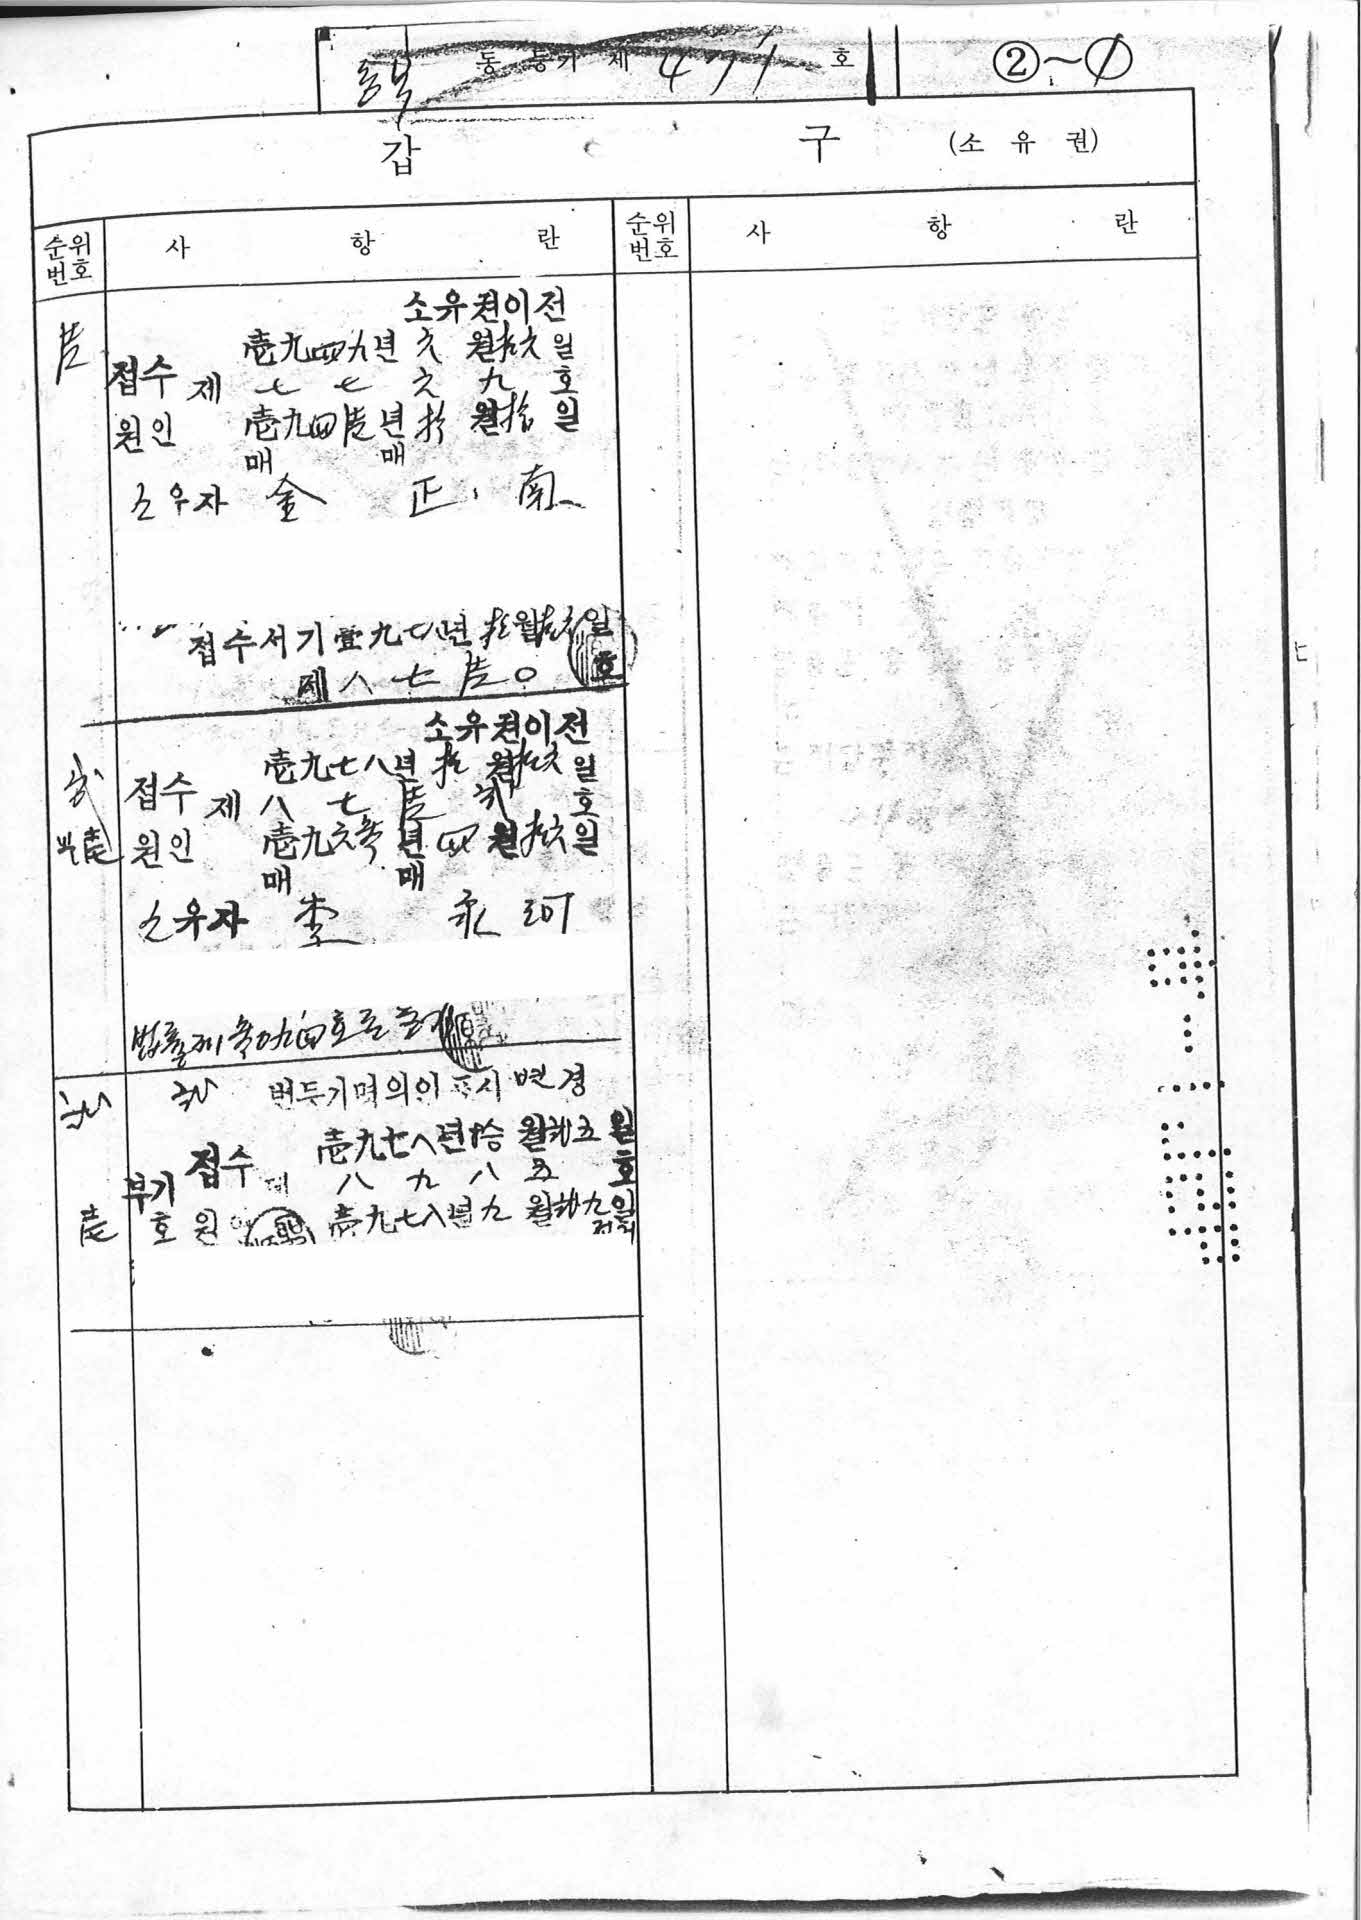 동복 동 등기 제 471 호
②~1
갑 구 (소 유 권)
순위번호 사 항 란 순위번호 사 항 란
소유권이전
壱
접수 壱九四九년 六월 拾六일
제 七七六九호
원인 壱九四壱년 拾월 拾일
매매
소유자 金 正 南
접수서기壹九七八년 拾월 拾六일
제八七壱〇호
소유권이전
弐
접수 壱九七八년 拾월 拾六일
제 八七壱弐호
원인 壱九六 년 四월 拾六일
매매
소유자 李 永 珂
법률제 호로 등기
弐 弐 번등기명의인표시변경
접수 壱九七八년 拾월 廿五일
제 八九八五호
부기 壱호
원인 壱九七八년 九월 廿九일
전거